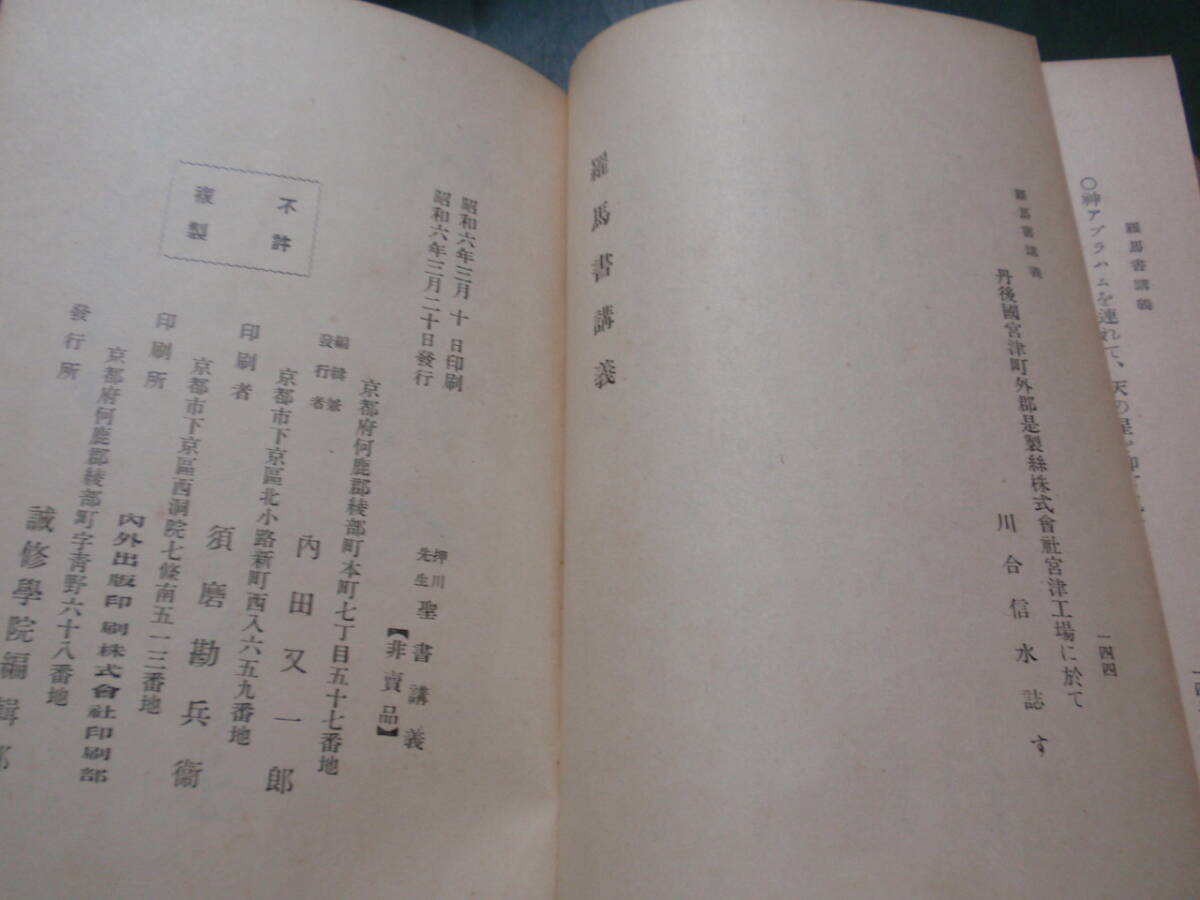 羅馬書講義
〇神アブラハムを連れて、天の星
羅馬書講義
一四四
丹後國宮津町外郡是製絲株式會社宮津工場に於て
川合信水誌す
羅馬書講義
昭和六年三月十日印刷
昭和六年三月二十日發行
押川先生聖書講義
【非賣品】
京都府何鹿郡綾部町本町七丁目五十七番地
編輯兼發行者
內田又一郎
京都市下京區北小路新町西入六五九番地
印刷者
須磨勘兵衞
京都市下京區西洞院七條南五一三番地
印刷所
內外出版印刷株式會社印刷部
京都府何鹿郡綾部町字靑野六十八番地
發行所
誠修學院編輯部
不許
複製